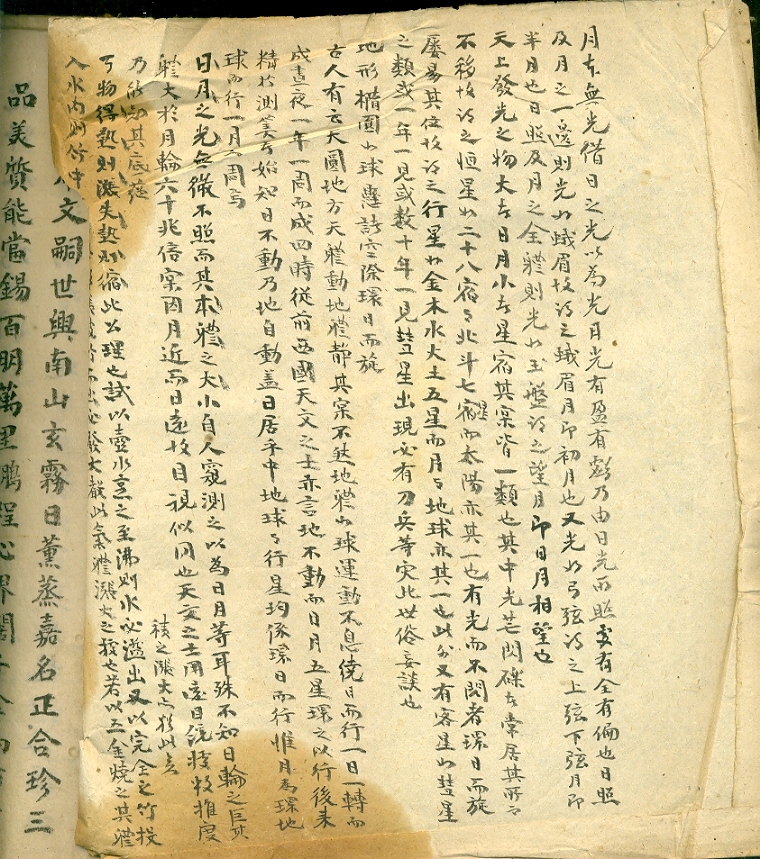 月本無光借日之光以為光月光有盈有虧乃由日光而照處有全有偏也日照
及月之一邊則光如蛾眉故謂之蛾眉月即初月也又光如弓弦謂之上弦下弦月即
半月也日照及月之全體則光如玉盤謂之望月即日月相望也
天上發光之物大者日月小者星宿其寔皆一類也其中光芒閃礫者常居其所々
不移故謂之恒星如二十八宿々北斗七星宿而太陽亦其一也有光而不閃者環日而旋
屢易其位故謂之行星如金木水火土五星而月々地球亦其一也此外又有客星如彗星
之類或一年一見或数十年一見彗星出現必有刀兵等灾此世俗妄談也
地形橢圓如球懸於空際環日而旋
古人有云天圓地方天體動地體静其寔不然地體如球運動不息繞日而行一日一轉而
成晝夜一年一周而成四時従前西國天文之士亦言地不動而日月五星環之以行後来
精於測筭者始知日不動乃地自動盖日居乎中地球々行星均係環日而行惟月為環地
球而行一月一周焉
日月之光無微不照而其本體之大小自人窺測之以為日月等耳殊不知日輪之巨其
體大於月輪六十兆倍寔因月近而日遠故目視似同也天文之士用遠目鏡揆攷推度
乃能知其底蘊
萬物得熱則漲失熱則縮此公理也試以壺水煮之至沸則水必溢出又以完全之竹投
入火内則竹中
必發大聲此氣體漲大之攷也若以五金燒之其體
核之漲大亦猶此矣
文嗣世興南山玄霧日薰蒸嘉名正合珍三
品美質能當錫百朋萬里鵬程心界闊